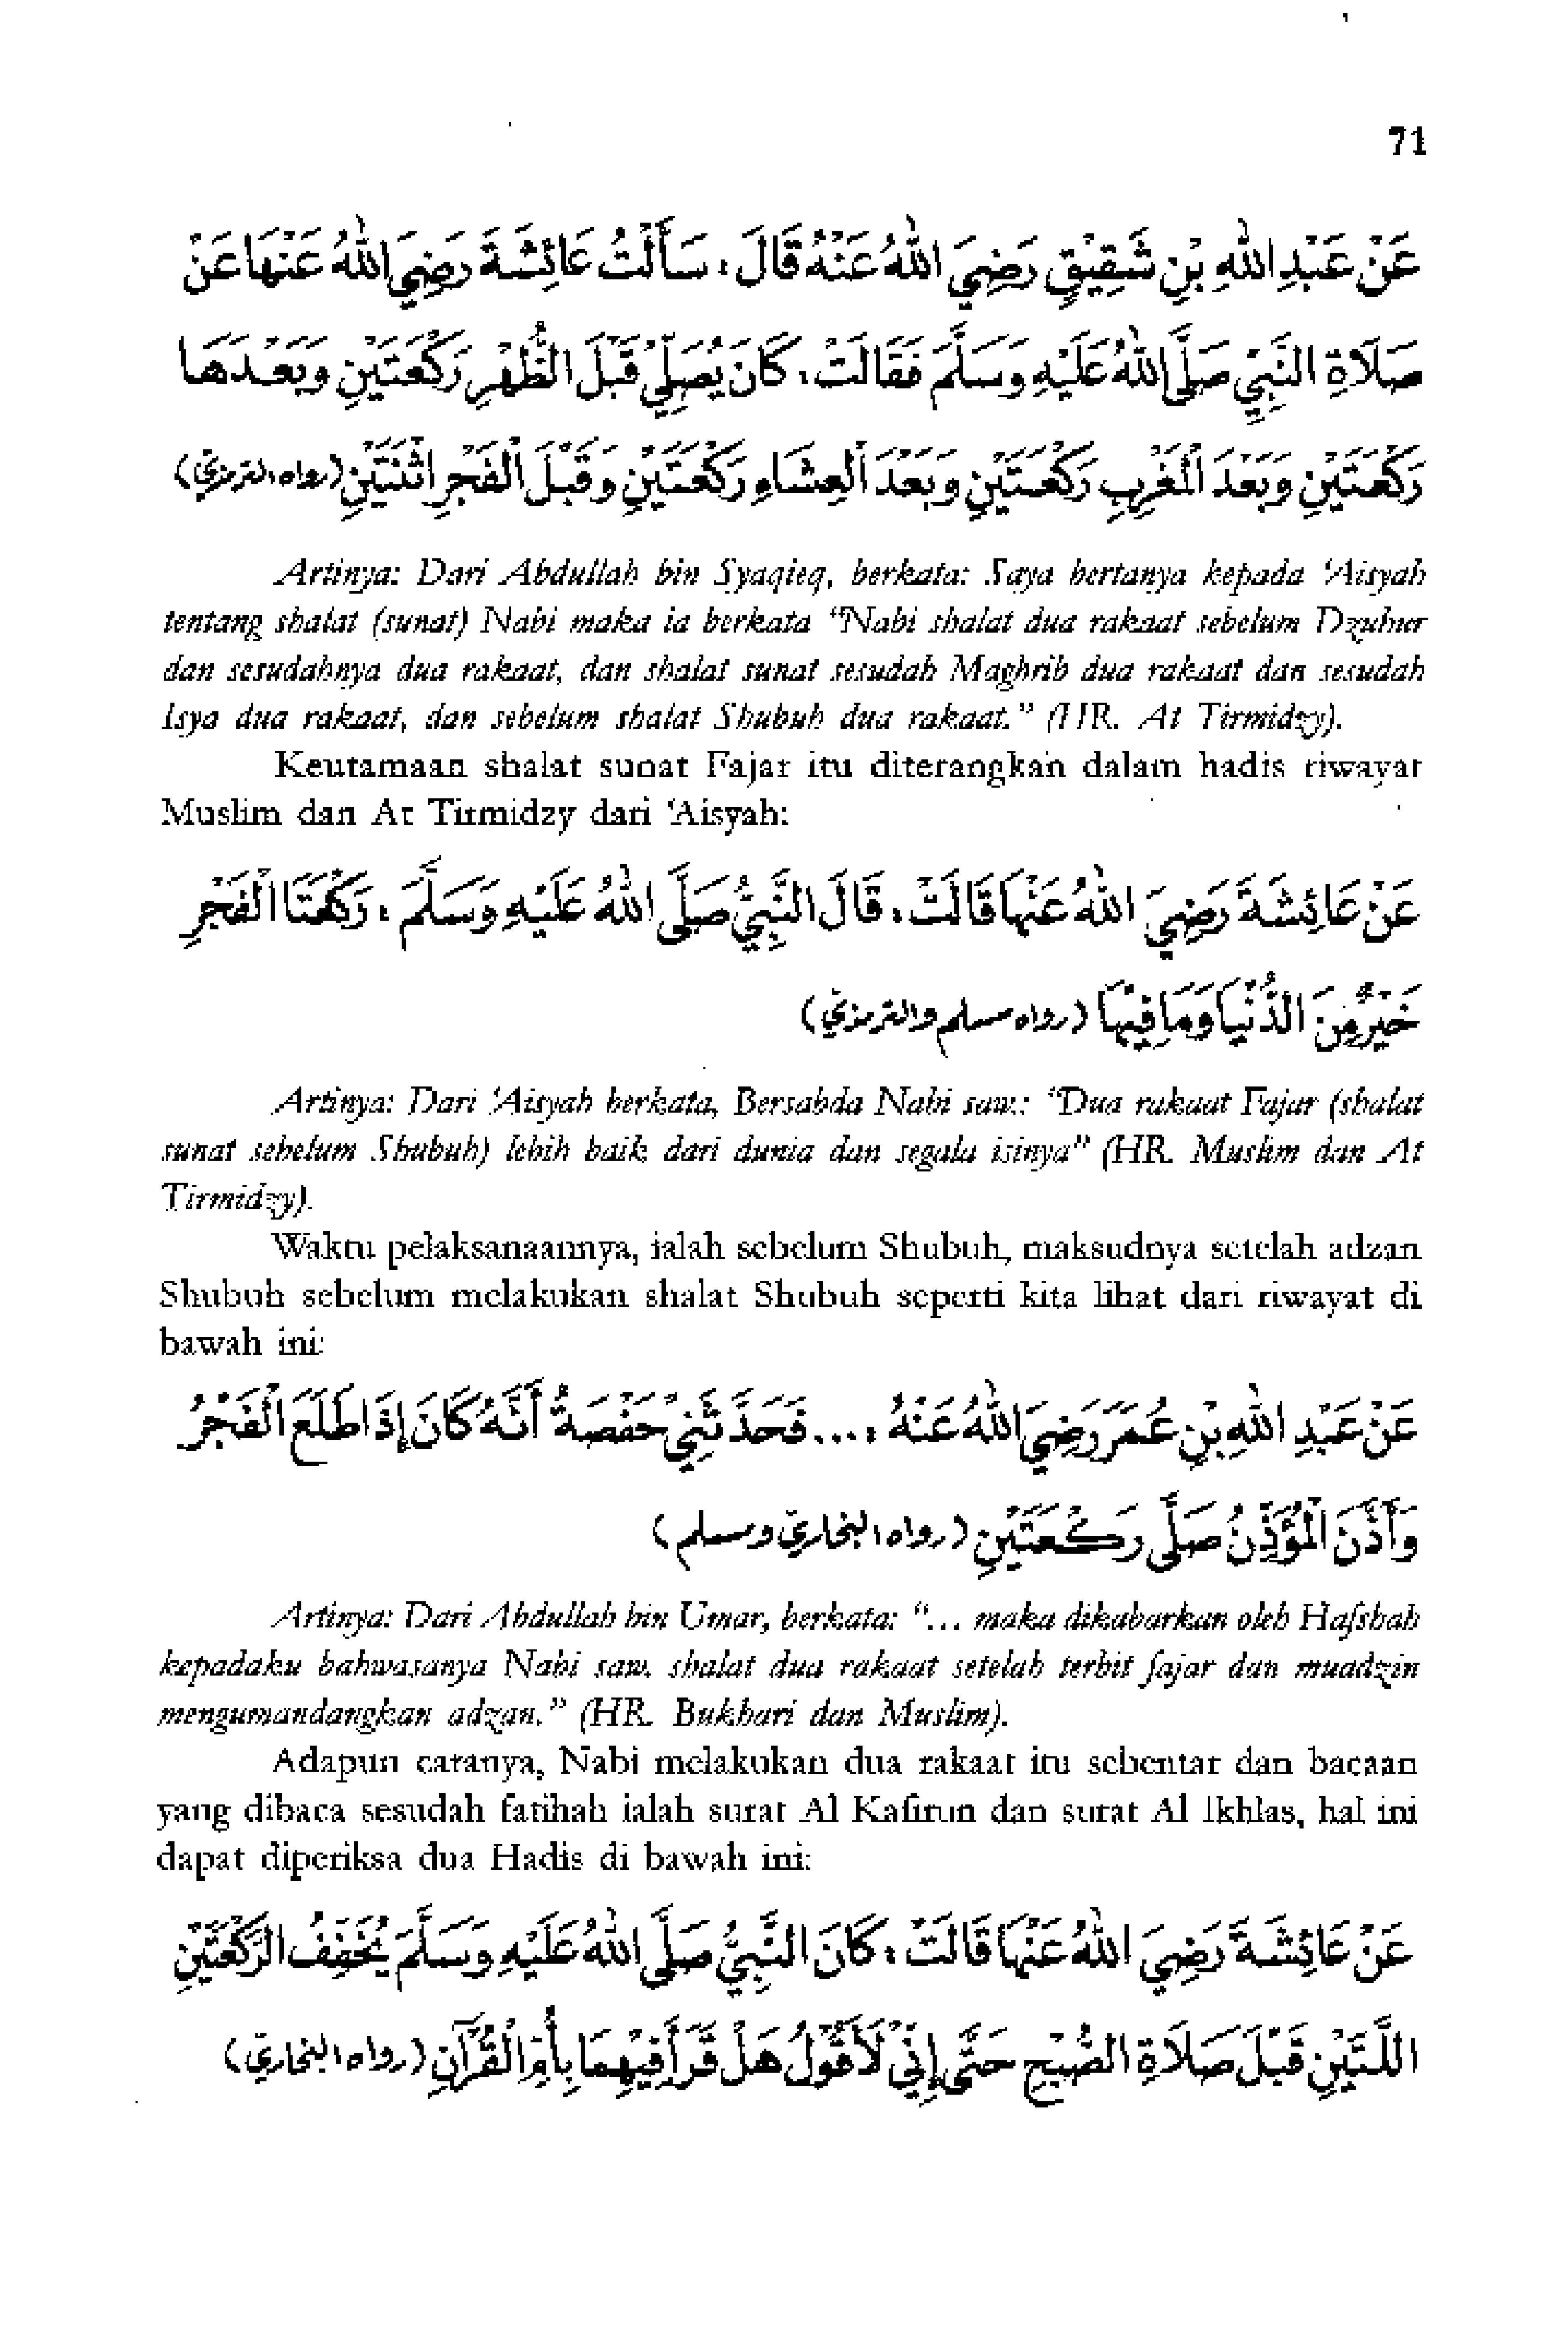 71
عَنْ عَبْدِ اللهِ بْنِ شَقِيْقٍ رَضِيَ اللهُ عَنْهُ قَالَ، سَأَلْتُ عَائِشَةَ رَضِيَ اللهُ عَنْهَا عَنْ
صَلَاةِ النَّبِيِّ صَلَّى اللهُ عَلَيْهِ وَسَلَّمَ فَقَالَتْ، كَانَ يُصَلِّيْ قَبْلَ الظُّهْرِ رَكْعَتَيْنِ وَبَعْدَهَا
رَكْعَتَيْنِ وَبَعْدَ الْمَغْرِبِ رَكْعَتَيْنِ وَبَعْدَ الْعِشَاءِ رَكْعَتَيْنِ وَقَبْلَ الْفَجْرِ اثْنَتَيْنِ (رواه الترمذيّ)
Artinya: Dari Abdullah bin Syaqieq, berkata: Saya bertanya kepada 'Aisyah
tentang shalat (sunat) Nabi maka ia berkata "Nabi shalat dua rakaat sebelum Dzuhur
dan sesudahnya dua rakaat, dan shalat sunat sesudah Maghrib dua rakaat dan sesudah
Isya dua rakaat, dan sebelum shalat Shubuh dua rakaat." (HR. At Tirmidzy).
Keutamaan shalat sunat Fajar itu diterangkan dalam hadis riwayat
Muslim dan At Tirmidzy dari 'Aisyah:
عَنْ عَائِشَةَ رَضِيَ اللهُ عَنْهَا قَالَتْ، قَالَ النَّبِيُّ صَلَّى اللهُ عَلَيْهِ وَسَلَّمَ، رَكْعَتَا الْفَجْرِ
خَيْرٌ مِنَ الدُّنْيَا وَمَا فِيْهَا (رواه مسلم والترمذيّ)
Artinya: Dari 'Aisyah berkata, Bersabda Nabi saw.: "Dua rakaat Fajar (shalat
sunat sebelum Shubuh) lebih baik dari dunia dan segala isinya" (HR. Muslim dan At
Tirmidzy).
Waktu pelaksanaannya, ialah sebelum Shubuh, maksudnya setelah adzan
Shubuh sebelum melakukan shalat Shubuh seperti kita lihat dari riwayat di
bawah ini:
عَنْ عَبْدِ اللهِ بْنِ عُمَرَ رَضِيَ اللهُ عَنْهُ، ... فَحَدَّثَنِيْ حَفْصَةُ أَنَّهُ كَانَ إِذَا طَلَعَ الْفَجْرُ
وَأَذَّنَ الْمُؤَذِّنُ صَلَّى رَكْعَتَيْنِ (رواه البخاريّ ومسلم)
Artinya: Dari Abdullah bin Umar, berkata: "... maka dikabarkan oleh Hafshah
kepadaku bahwasanya Nabi saw. shalat dua rakaat setelah terbit fajar dan muadzin
mengumandangkan adzan." (HR. Bukhari dan Muslim).
Adapun caranya, Nabi melakukan dua rakaat itu sebentar dan bacaan
yang dibaca sesudah fatihah ialah surat Al Kafirun dan surat Al Ikhlas, hal ini
dapat diperiksa dua Hadis di bawah ini:
عَنْ عَائِشَةَ رَضِيَ اللهُ عَنْهَا قَالَتْ، كَانَ النَّبِيُّ صَلَّى اللهُ عَلَيْهِ وَسَلَّمَ يُخَفِّفُ الرَّكْعَتَيْنِ
اللَّتَيْنِ قَبْلَ صَلَاةِ الصُّبْحِ حَتَّى إِنِّيْ لَأَقُوْلُ هَلْ قَرَأَ فِيْهِمَا بِأُمِّ الْقُرْآنِ (رواه البخاريّ)